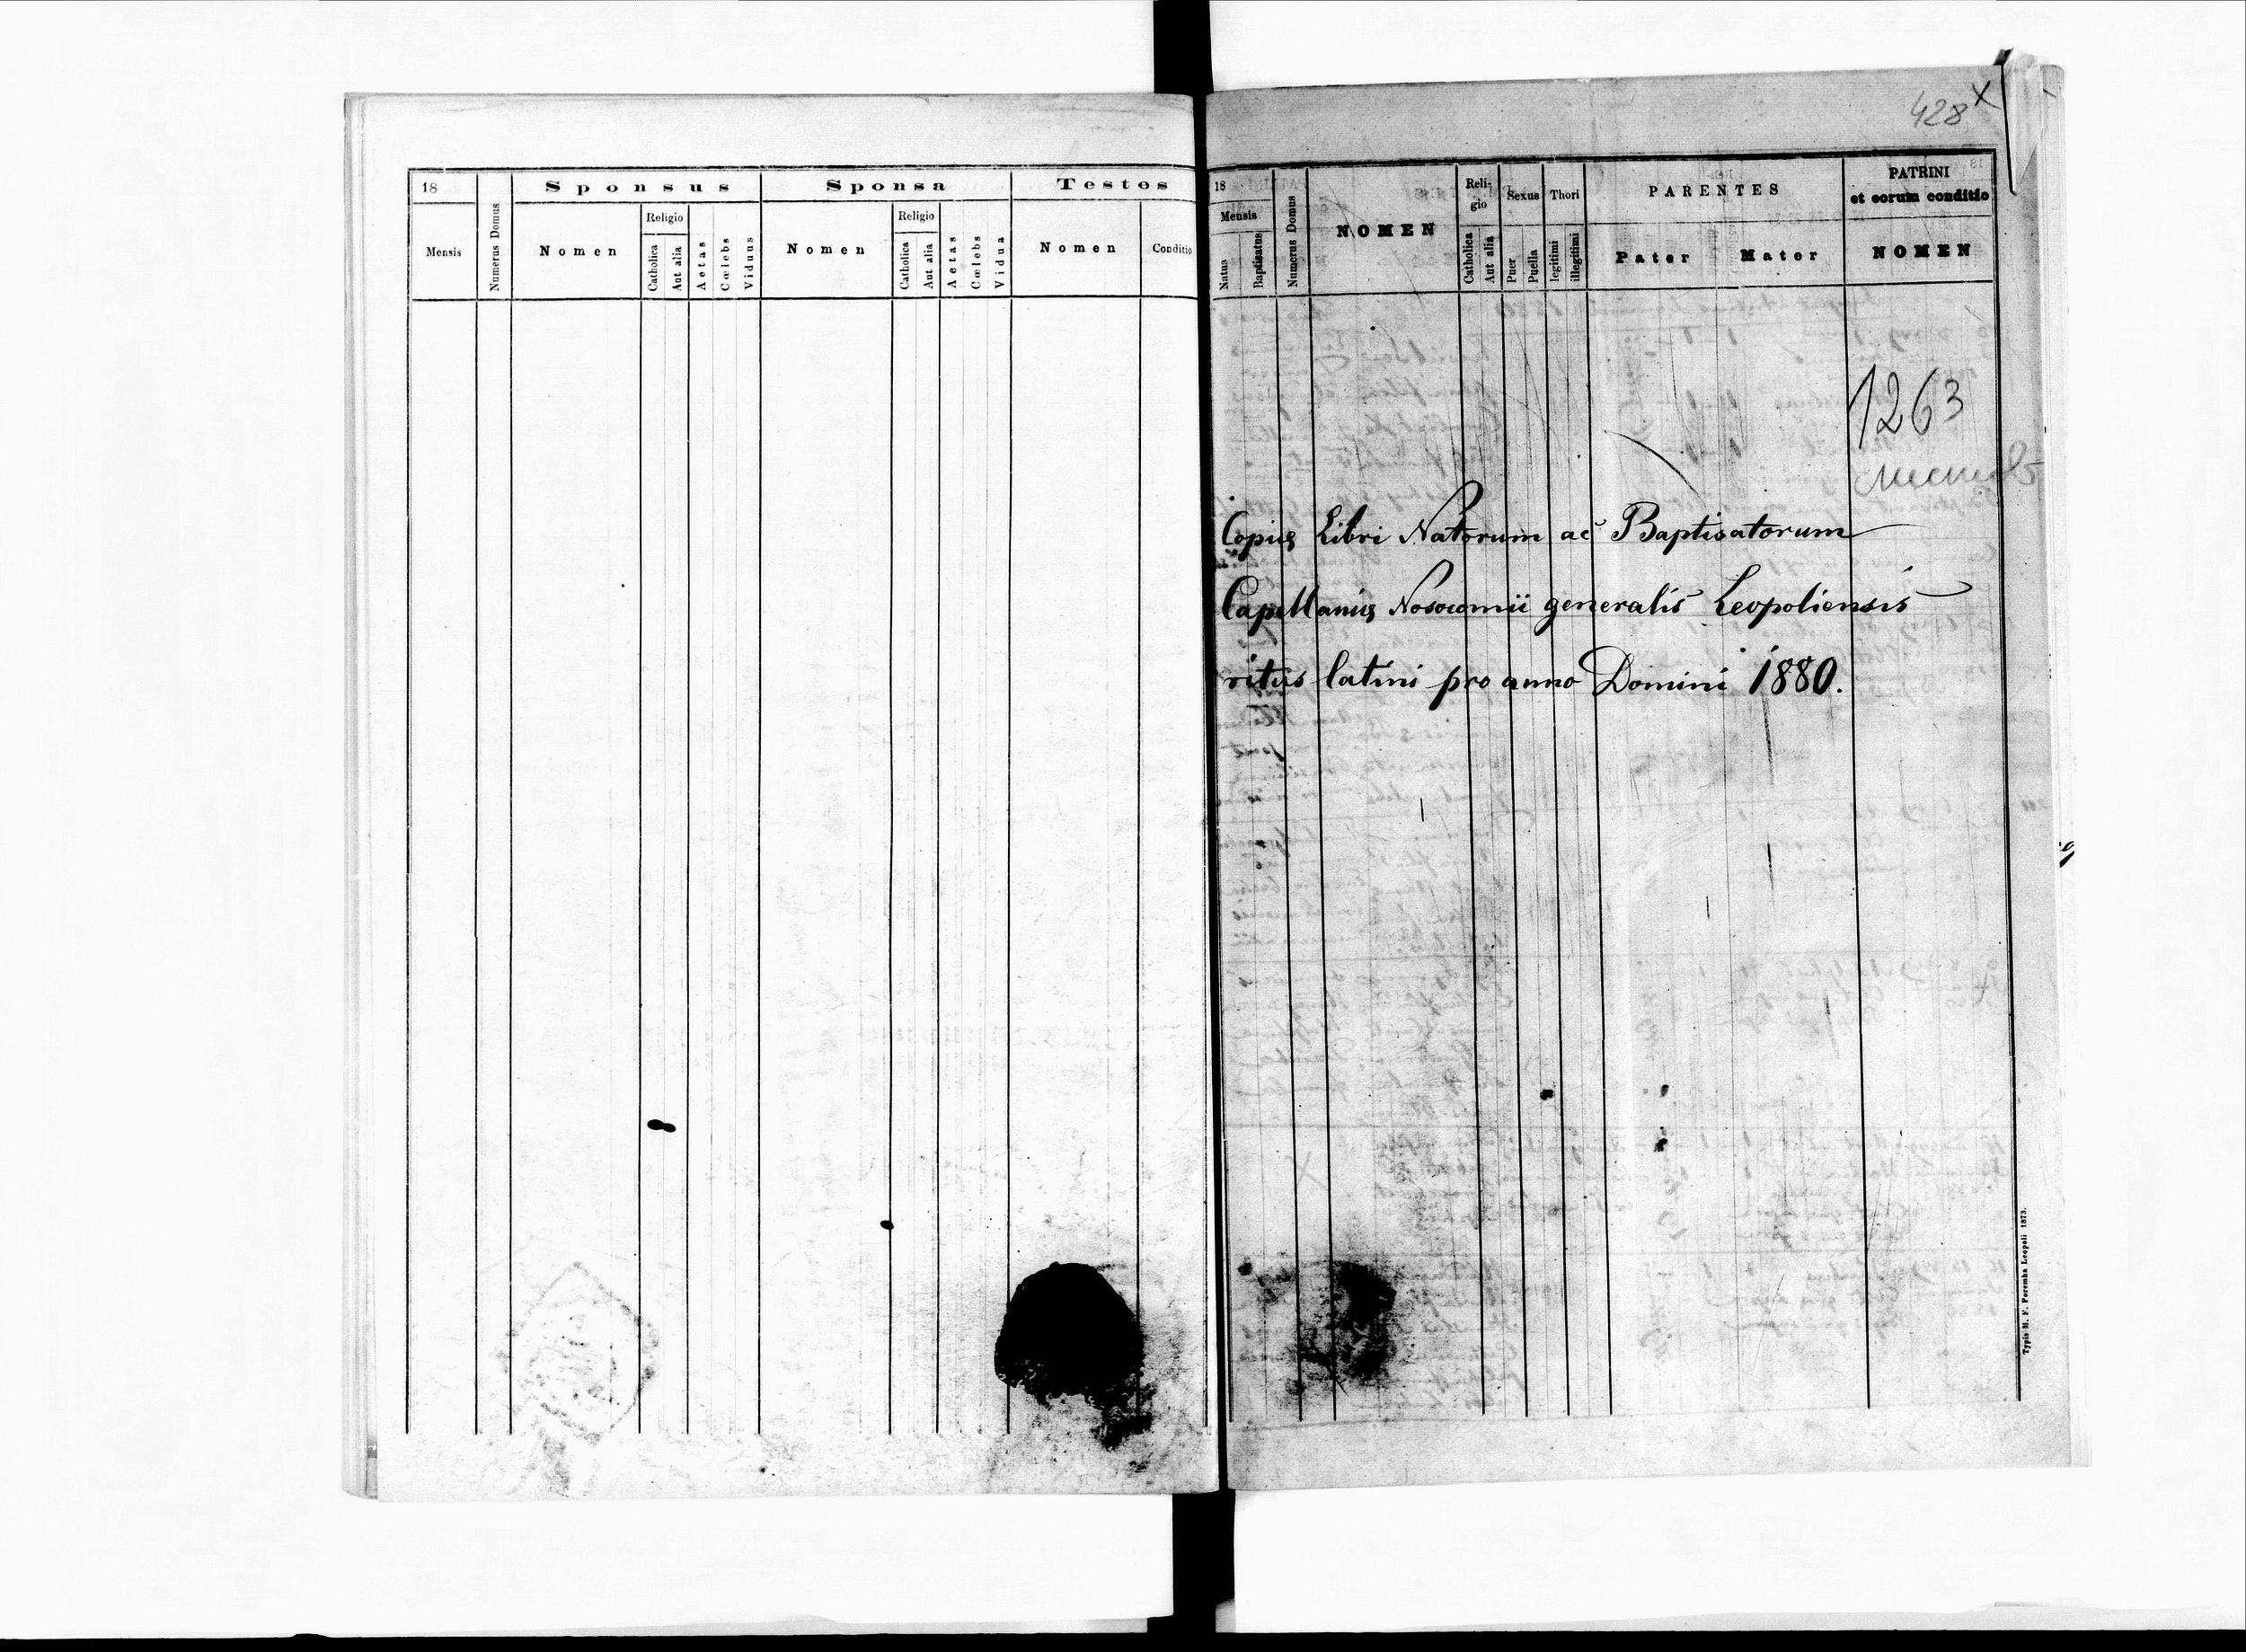 18
Mensis
Numerus Domus
Sponsus
Nomen
Religio
Catholica
Aut alia
Aetas
Cœlebs
Viduus
Sponsa
Nomen
Religio
Catholica
Aut alia
Aetas
Cœlebs
Vidua
Testes
Nomen
Conditio
428 x
18
Mensis
Natus
Baptisatus
Numerus Domus
NOMEN
Reli-
gio
Catholica
Aut alia
Sexus
Puer
Puella
Thori
legitimi
illegitimi
PARENTES
Pater
Mater
PATRINI
et eorum conditio
NOMEN
1263
Copia Libri Natorum ac Baptisatorum
Capellaniæ Nosocomii generalis Leopoliensis
ritus latini pro anno Domini 1880.
Typis M. F. Poremba Leopoli 1873.